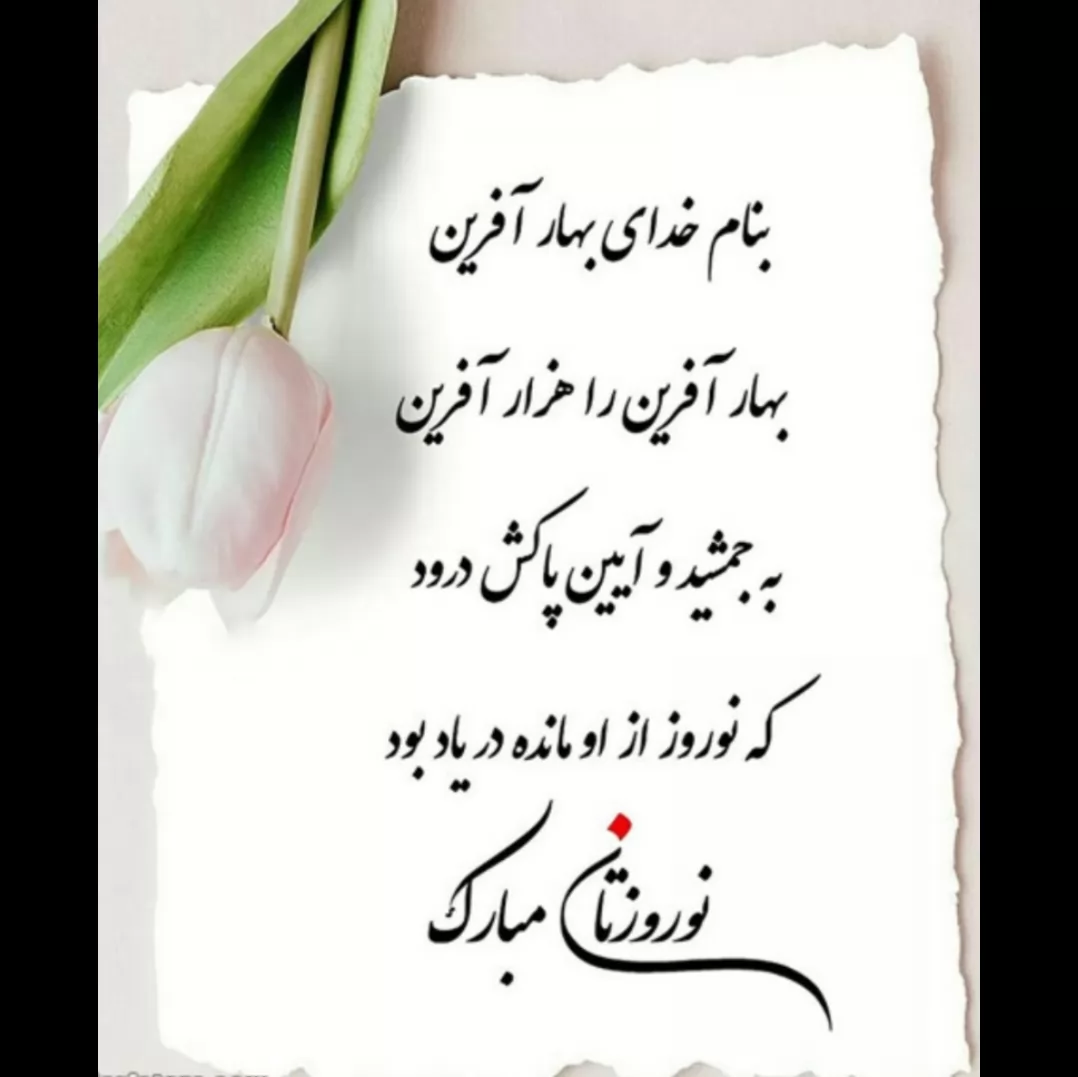 بنام خدای بهار آفرین
بهار آفرین را هزار آفرین
به جمشید و آیین پاکش درود
که نوروز از او مانده در یاد بود
نوروزتان مبارک